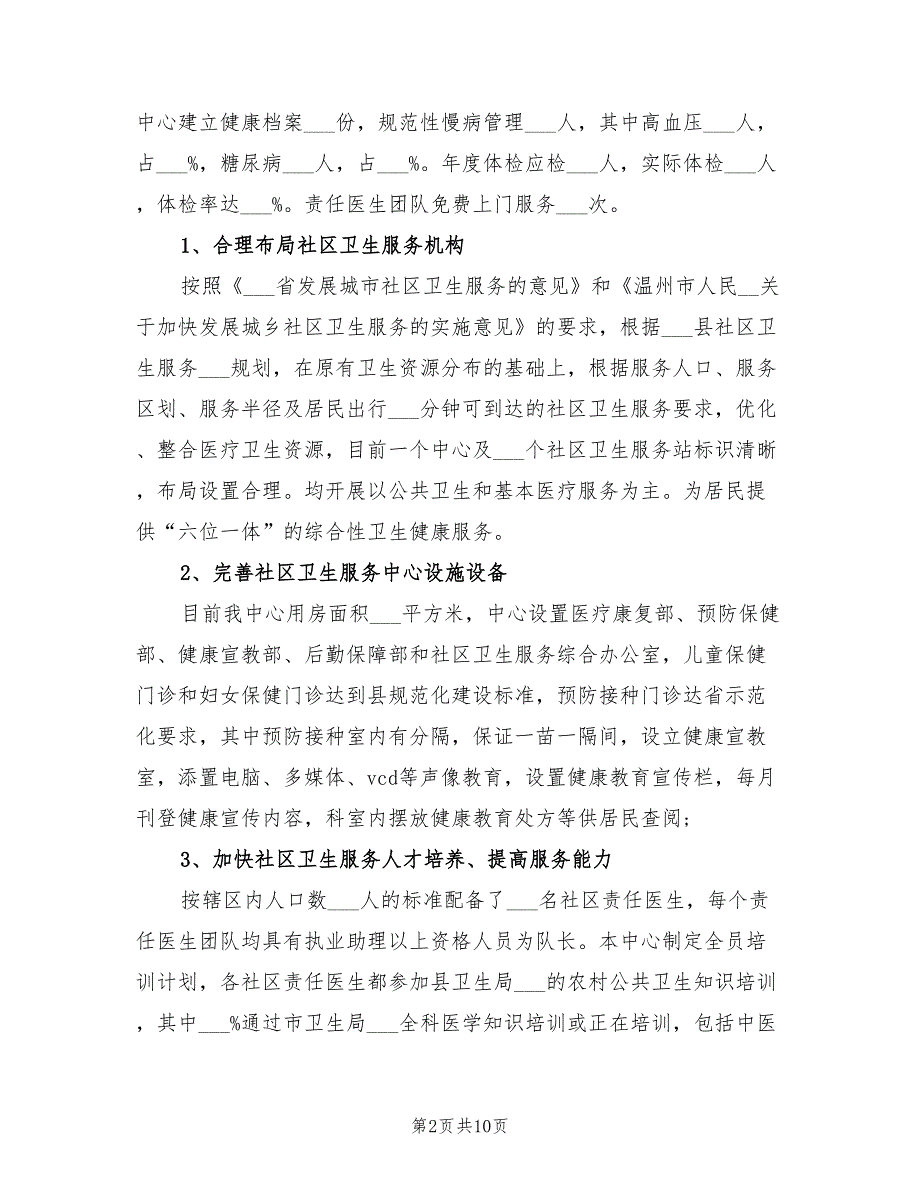 中心建立健康档案___份，规范性慢病管理___人，其中高血压___人，
占___%，糖尿病___人，占___%。年度体检应检___人，实际体检___人
，体检率达___%。责任医生团队免费上门服务___次。
1、合理布局社区卫生服务机构
按照《___省发展城市社区卫生服务的意见》和《温州市人民__关
于加快发展城乡社区卫生服务的实施意见》的要求，根据___县社区卫
生服务___规划，在原有卫生资源分布的基础上，根据服务人口、服务
区划、服务半径及居民出行___分钟可到达的社区卫生服务要求，优化
、整合医疗卫生资源，目前一个中心及___个社区卫生服务站标识清晰
，布局设置合理。均开展以公共卫生和基本医疗服务为主。为居民提
供“六位一体”的综合性卫生健康服务。
2、完善社区卫生服务中心设施设备
目前我中心用房面积___平方米，中心设置医疗康复部、预防保健
部、健康宣教部、后勤保障部和社区卫生服务综合办公室，儿童保健
门诊和妇女保健门诊达到县规范化建设标准，预防接种门诊达省示范
化要求，其中预防接种室内有分隔，保证一苗一隔间，设立健康宣教
室，添置电脑、多媒体、vcd等声像教育，设置健康教育宣传栏，每月
刊登健康宣传内容，科室内摆放健康教育处方等供居民查阅;
3、加快社区卫生服务人才培养、提高服务能力
按辖区内人口数___人的标准配备了___名社区责任医生，每个责
任医生团队均具有执业助理以上资格人员为队长。本中心制定全员培
训计划，各社区责任医生都参加县卫生局___的农村公共卫生知识培训
，其中___%通过市卫生局___全科医学知识培训或正在培训，包括中医
第2页共10页